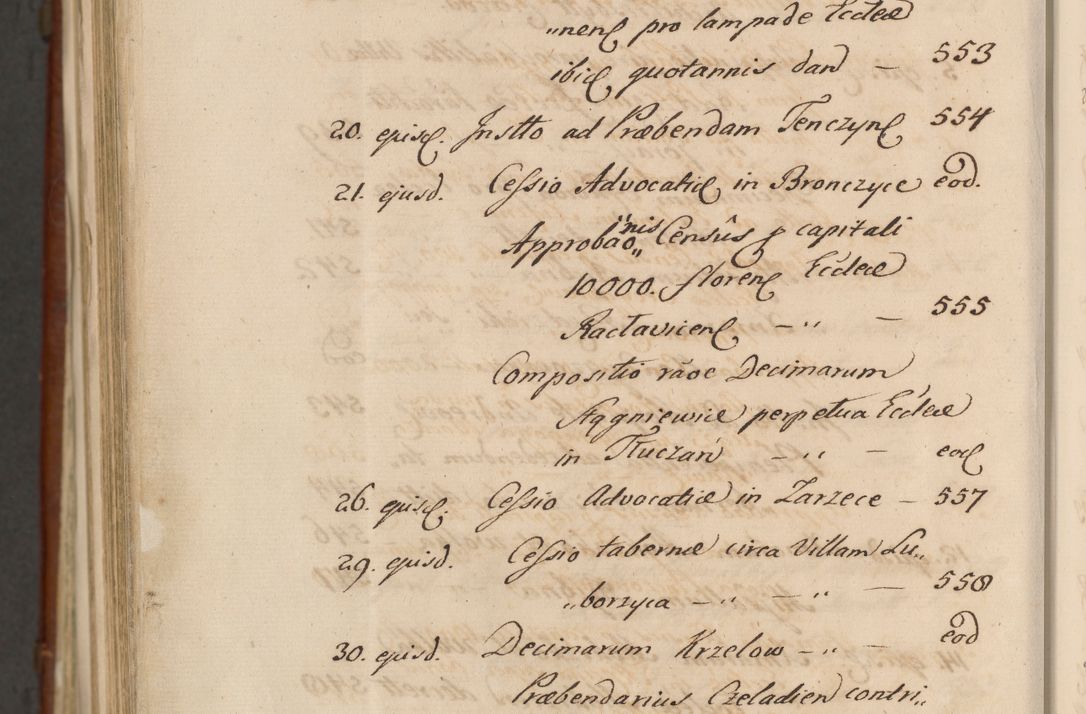 „nen pro lampade Eccleæ
ibid quotannis dand — 553
20. ejusd. Instto ad Præbendam Tenczyn 554
21. ejusd. Cessio Advocatiæ in Bronczyce eod.
Approbāo„nis Censûs p capitali
10000. floren Eccleæ
Racławicen — „ — 555
Compositio rāoe Decimarum
Stągniewicæ perpetua Eccleæ
in Tłuczań — „ — eod
26. ejusd. Cessio Advocatiæ in Zarzece — 557
29. ejusd. Cessio tabernæ circa Villam Lu„
„borzyca — „ — „ — 558
30. ejusd. Decimarum Krzelow — „ — eod
Præbendarius Czeladien contri„